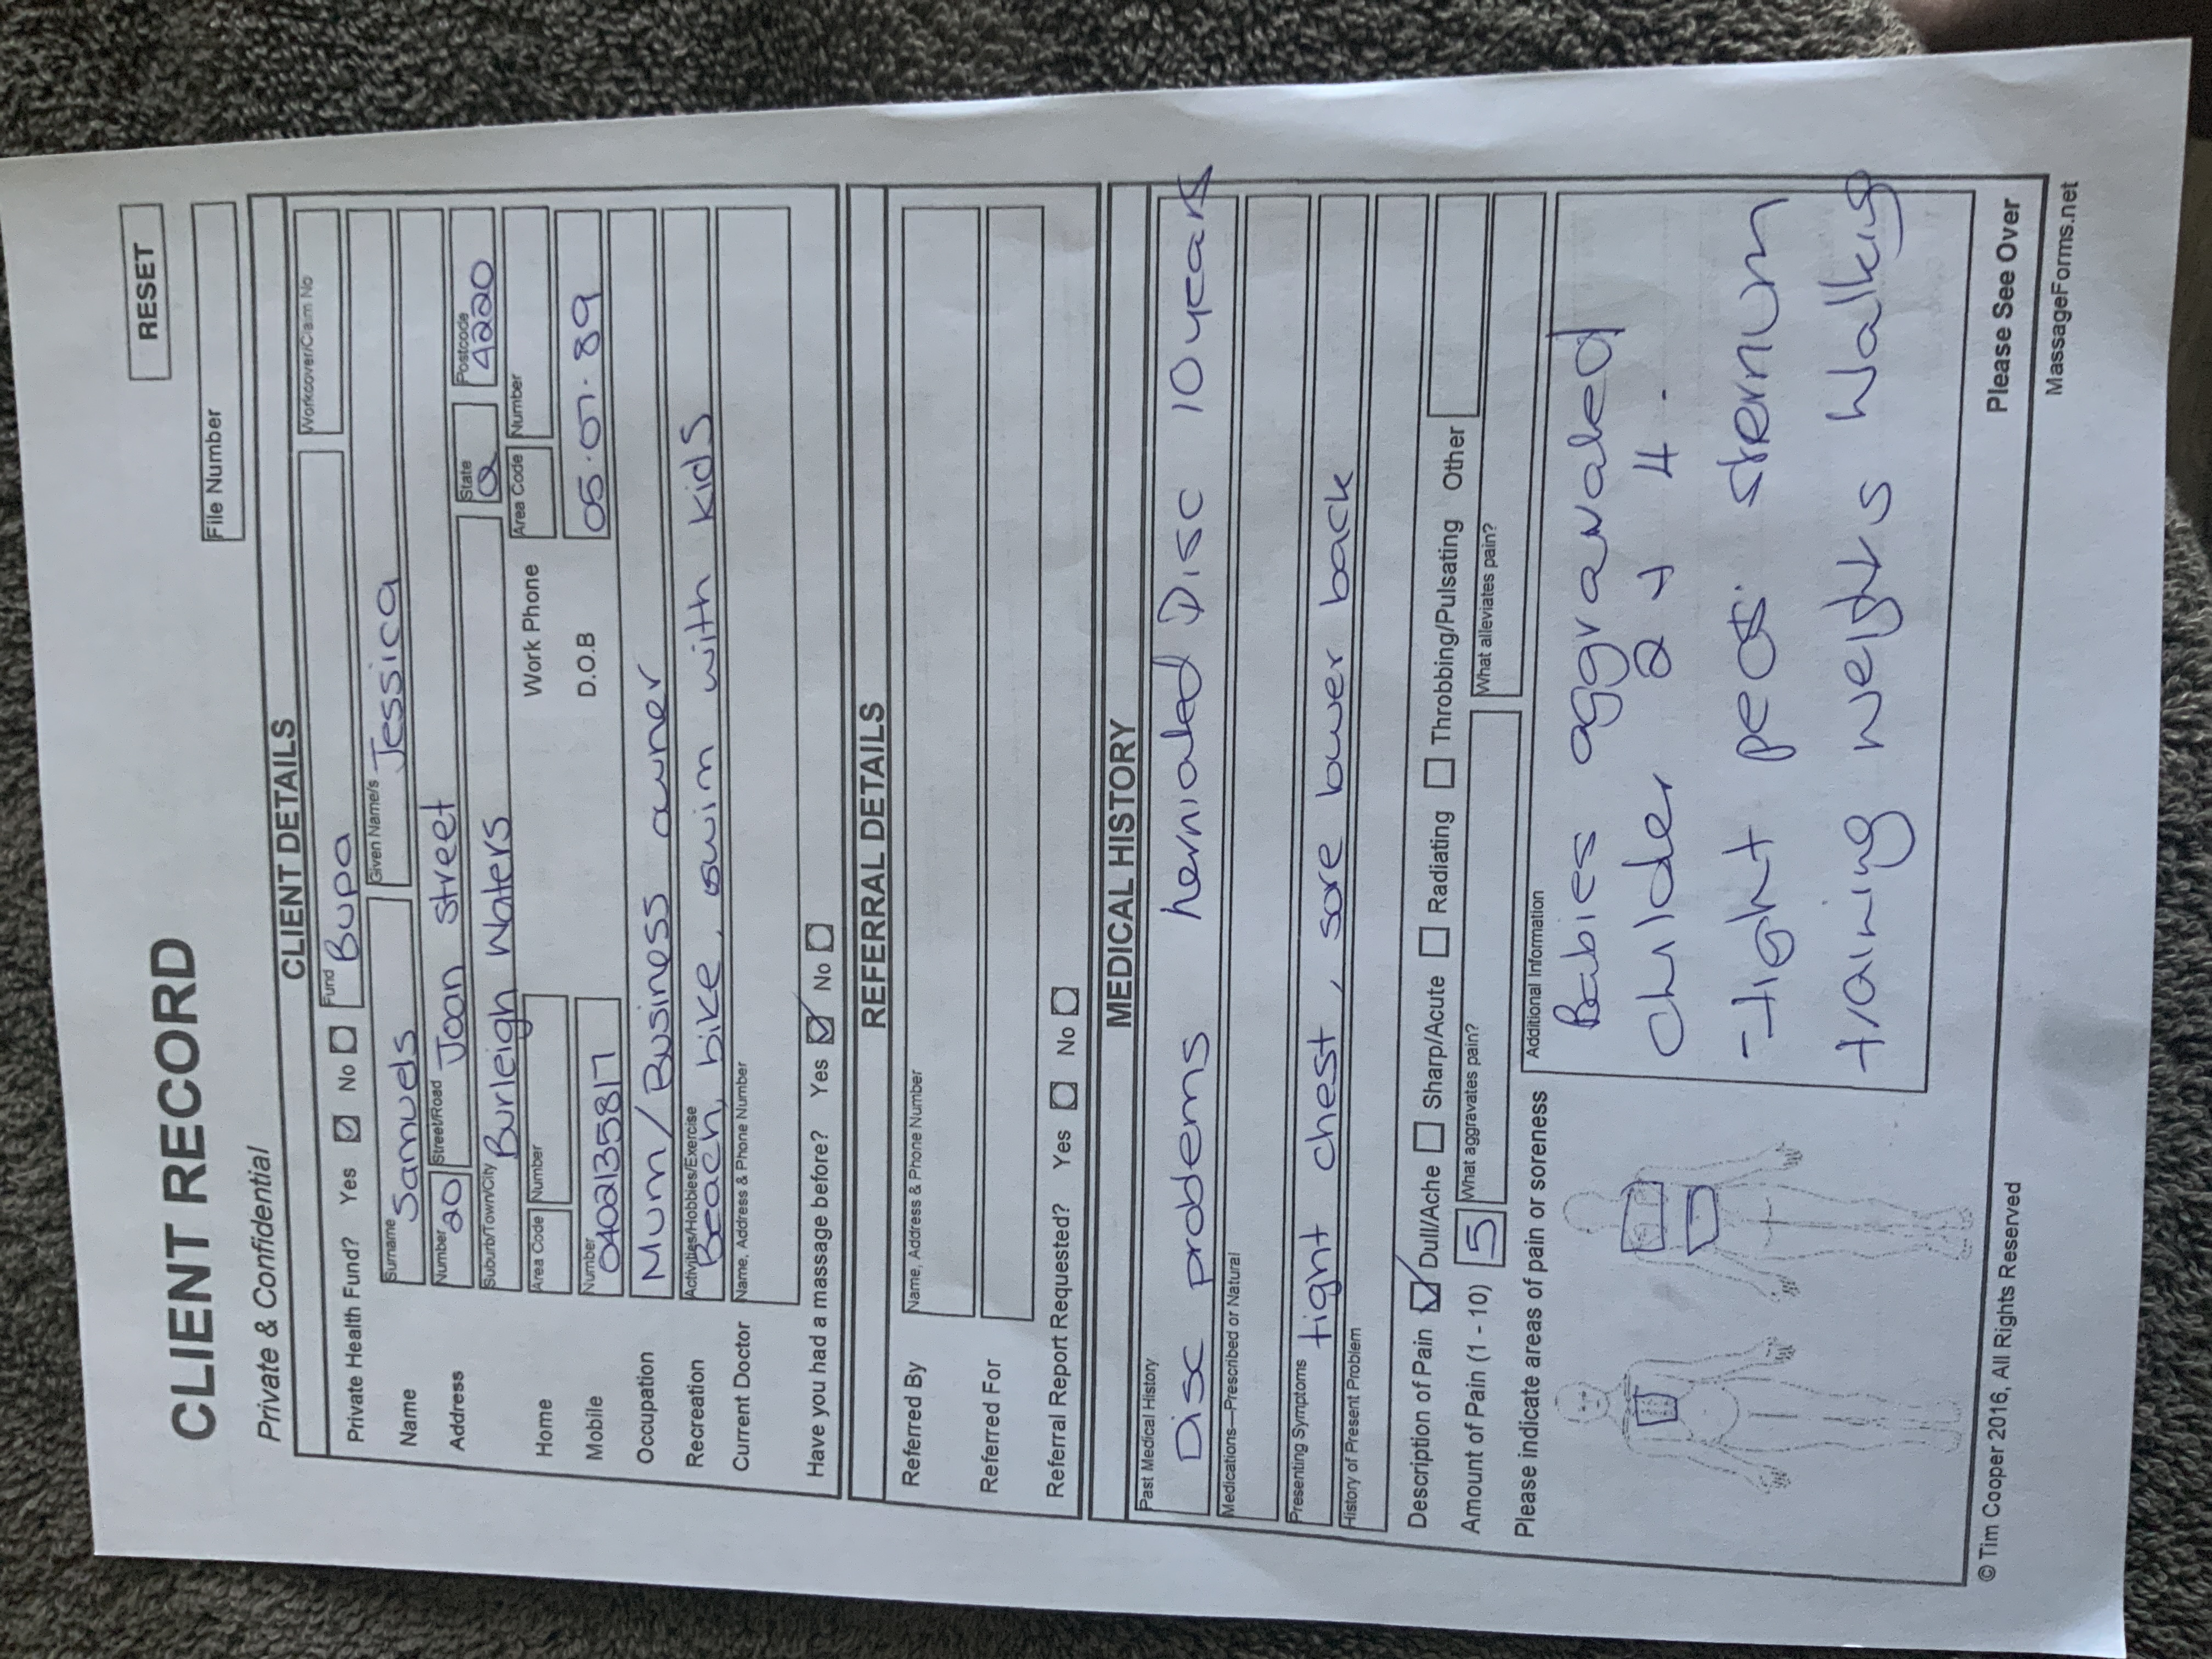 RESET
CLIENT RECORD
File Number
Private & Confidential
CLIENT DETAILS
Private Health Fund? Yes No Fund Bupa Workcover/Claim No
Name Surname Samuels Given Name/s Jessica
Address Number 20 Street/Road Joan street
Suburb/Town/City Burleigh Waters State Q Postcode 4220
Home Area Code Number Work Phone Area Code Number
Mobile Number 0402135817 D.O.B 05.07.89
Occupation Mum/Business owner
Recreation Activities/Hobbies/Exercise Beach, bike, swim with kids
Current Doctor Name, Address & Phone Number
Have you had a massage before? Yes No
REFERRAL DETAILS
Referred By Name, Address & Phone Number
Referred For
Referral Report Requested? Yes No
MEDICAL HISTORY
Past Medical History
Disc problems herniated Disc 10 years
Medications—Prescribed or Natural
Presenting Symptoms tight chest, sore lower back
History of Present Problem
Description of Pain Dull/Ache Sharp/Acute Radiating Throbbing/Pulsating Other
Amount of Pain (1 - 10) 5 What aggravates pain? What alleviates pain?
Please indicate areas of pain or soreness
Additional Information
Babies aggravated
childer 2 + 4.
- tight pecs. sternum
training weights walking
© Tim Cooper 2016, All Rights Reserved
Please See Over
MassageForms.net